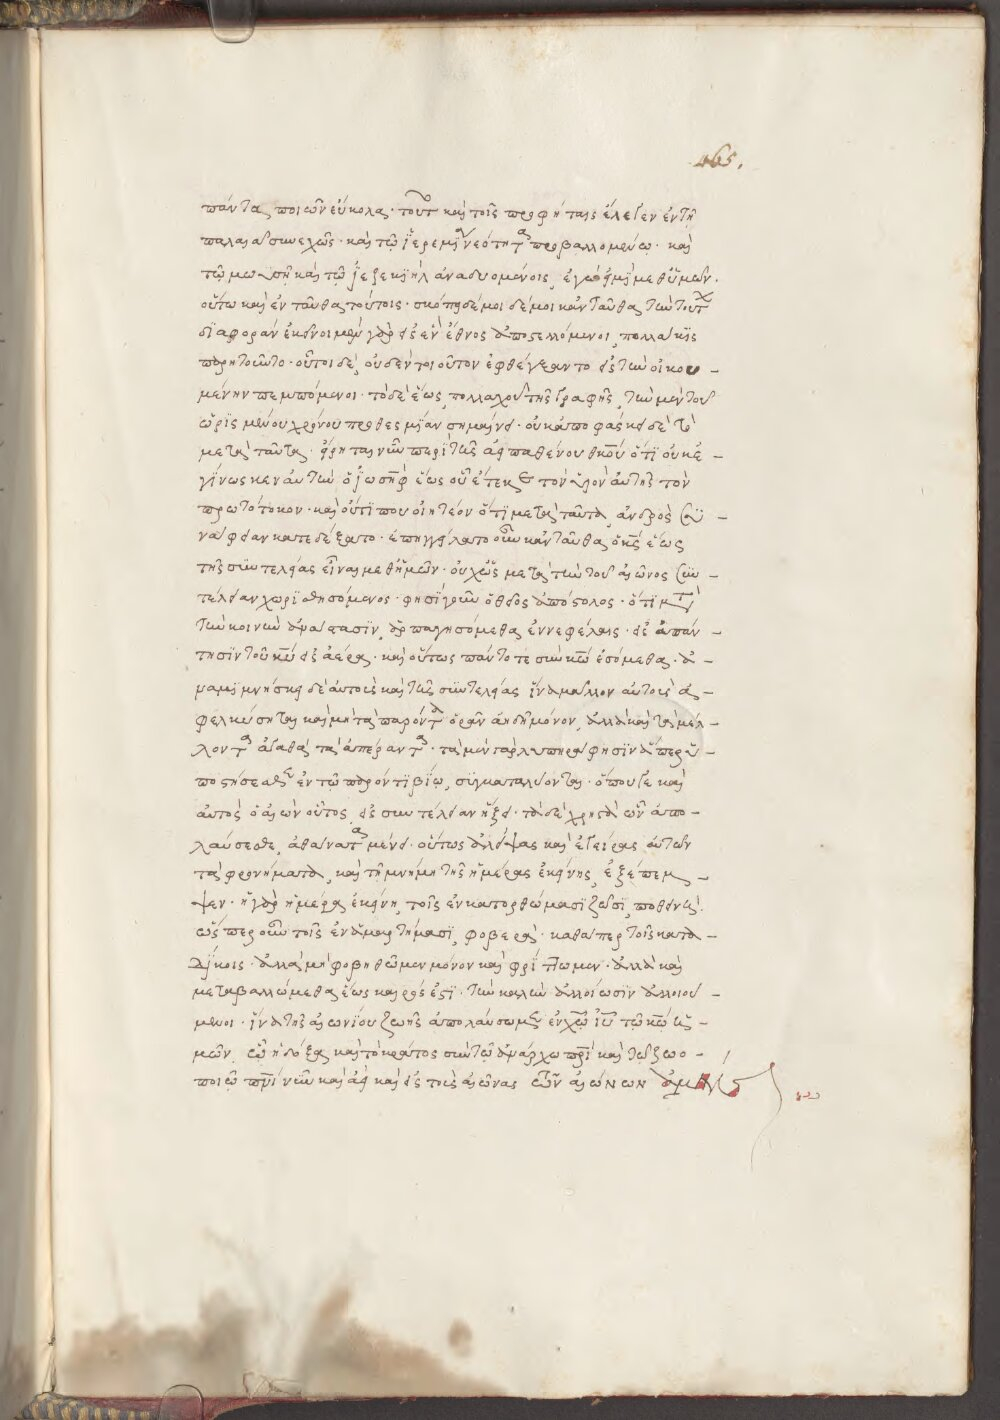 465.
πάντας ποιῶν εὐκόλως· τοῦτο καὶ τοῖς προφήταις ἔλεγεν ἐν τῇ
παλαιᾷ συνεχῶς· καὶ τῷ ἱερεμίᾳ νεότητα προβαλλομένῳ· καὶ
τῷ μωυσῇ καὶ τῷ ἰεζεκιὴλ ἀναδυομένοις, ἐγώ εἰμι μεθ' ὑμῶν.
οὕτω καὶ ἐνταῦθα τούτοις· σκόπησε μοι δέ μοι κἀνταῦθα τὴν τούτων
διαφοράν ἐκεῖνοι μὲν γὰρ εἰς ἓν ἔθνος ἀποστελλόμενοι, πολλάκις
παρῃτοῦντο· οὗτοι δὲ, οὐδὲν τοιοῦτον ἐφθέγξαντο εἰς τὴν οἰκου-
μένην πεμπόμενοι· τὸ δὲ ἕως, πολλαχοῦ τῆς γραφῆς, τὴν μὲν τοῦ
ὡρισμένου χρόνου προθεσμίαν σημαίνει· οὐκ ἀποφάσκει δὲ τὸ
μετὰ ταῦτα· εἴρηται γοῦν περὶ τῆς ἀειπαρθένου θκου ὅτι οὐκ ἐ-
γίνωσκεν αὐτὴν ὁ ἰωσὴφ ἕως οὗ ἔτεκε τὸν υἱὸν αὐτῆς τὸν
πρωτότοκον· καὶ οὔτι που οἰητέον ὅτι μετὰ ταῦτα, ἀνδρὸς συ-
νάφειαν κατεδέξατο· ἐπηγγείλατο οὖν κἀνταῦθα ὁ κς ἕως
τῆς συντελείας εἶναι μεθ' ἡμῶν· οὐχ ὡς μετὰ τὴν τοῦ αἰῶνος συν-
τέλειαν χωρισθησόμενος· φησὶ γοῦν ὁ θεῖος ἀπόστολος· ὅτι μετὰ
τὴν κοινὴν ἀνάστασιν, ἁρπαγησόμεθα ἐν νεφέλαις· εἰς ἀπάν-
τησιν τοῦ κυ εἰς ἀέρα· καὶ οὕτως πάντοτε σὺν κω ἐσόμεθα· ἀ-
ναμιμνήσκει δὲ αὐτοὺς καὶ τῆς συντελείας ἵνα μᾶλλον αὐτοὺς ἐ-
φελκύσηται καὶ μὴ τὰ παρόντα ὁρᾶν ἀηδῆ μόνον, ἀλλὰ καὶ τὰ μέλ-
λοντα ἀγαθὰ τὰ ἀπέραντα· τὰ μὲν γὰρ λυπηρά φησιν ἅπερ ὑ-
ποστήσεσθε ἐν τῷ παρόντι βίῳ, συγκαταλύονται· ὅπουγε καὶ
αὐτὸς ὁ αἰὼν οὗτος, εἰς συντέλειαν ἥξει· τὰ δὲ χρηστὰ ὧν ἀπο-
λαύσεσθε, ἀθάνατα μένει· οὕτως ἀλείψας καὶ ἐγείρας αὐτῶν
τὰ φρονήματα, καὶ τῇ μνήμῃ τῆς ἡμέρας ἐκείνης, ἐξέπεμ-
ψεν· ἡ γὰρ ἡμέρα ἐκείνη, τοῖς ἐν κατορθώμασι ζῶσι, ποθεινὴ.
ὥσπερ οὖν τοῖς ἐν ἁμαρτήμασι, φοβερά· καθάπερ τοῖς κατα-
δίκοις· ἀλλὰ μὴ φοβηθῶμεν μόνον καὶ φρίττωμεν· ἀλλὰ καὶ
μεταβαλλώμεθα ἕως καιρός ἐστι· τὴν καλὴν ἀλλοίωσιν ἀλλοιού-
μενοι· ἵνα τῆς αἰωνίου ζωῆς ἀπολαύσωμεν ἐν χω ιυ τῷ κω ἡ-
μῶν, ᾧ ἡ δόξα καὶ τὸ κράτος σὺν τῷ ἀνάρχω πρι καὶ τῷ ζωο-
ποιῷ πνι νῦν καὶ ἀεὶ καὶ εἰς τοὺς αἰῶνας τῶν αἰώνων ἀμήν